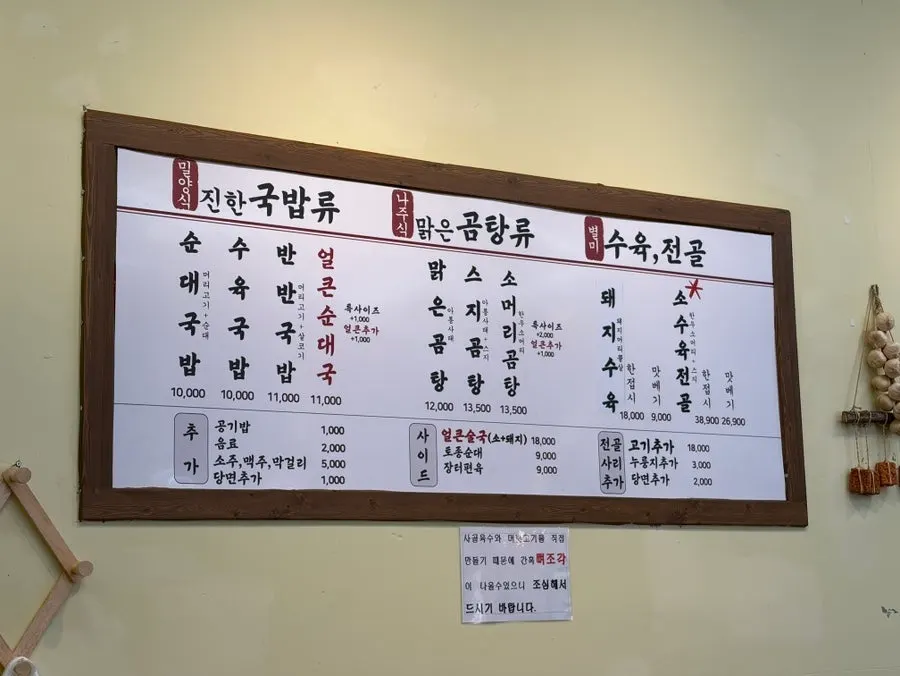 밀양식 진한 국밥류
순대국밥 머리고기+순대 10,000
수육국밥 10,000
반반국밥 머리고기+살코기 11,000
얼큰순대국 11,000
특사이즈
+1,000
얼큰추가
+1,000
추가
공기밥 1,000
음료 2,000
소주,맥주,막걸리 5,000
당면추가 1,000
나주식 맑은 곰탕류
맑은곰탕 아롱사태 12,000
스지곰탕 아롱사태+스지 13,500
소머리곰탕 한우소머리 13,500
특사이즈
+2,000
얼큰추가
+1,000
사이드
얼큰술국(소+돼지) 18,000
토종순대 9,000
장터편육 9,000
별미 수육,전골
돼지수육
한접시 18,000
맛베기 9,000
소수육전골 한우소머리+스지
한접시 38,900
맛베기 26,900
전골사리추가
고기추가 18,000
누룽지추가 3,000
당면추가 2,000
사골육수와 머릿고기를 직접
만들기 때문에 간혹 뼈조각
이 나올수있으니 조심해서
드시기 바랍니다.